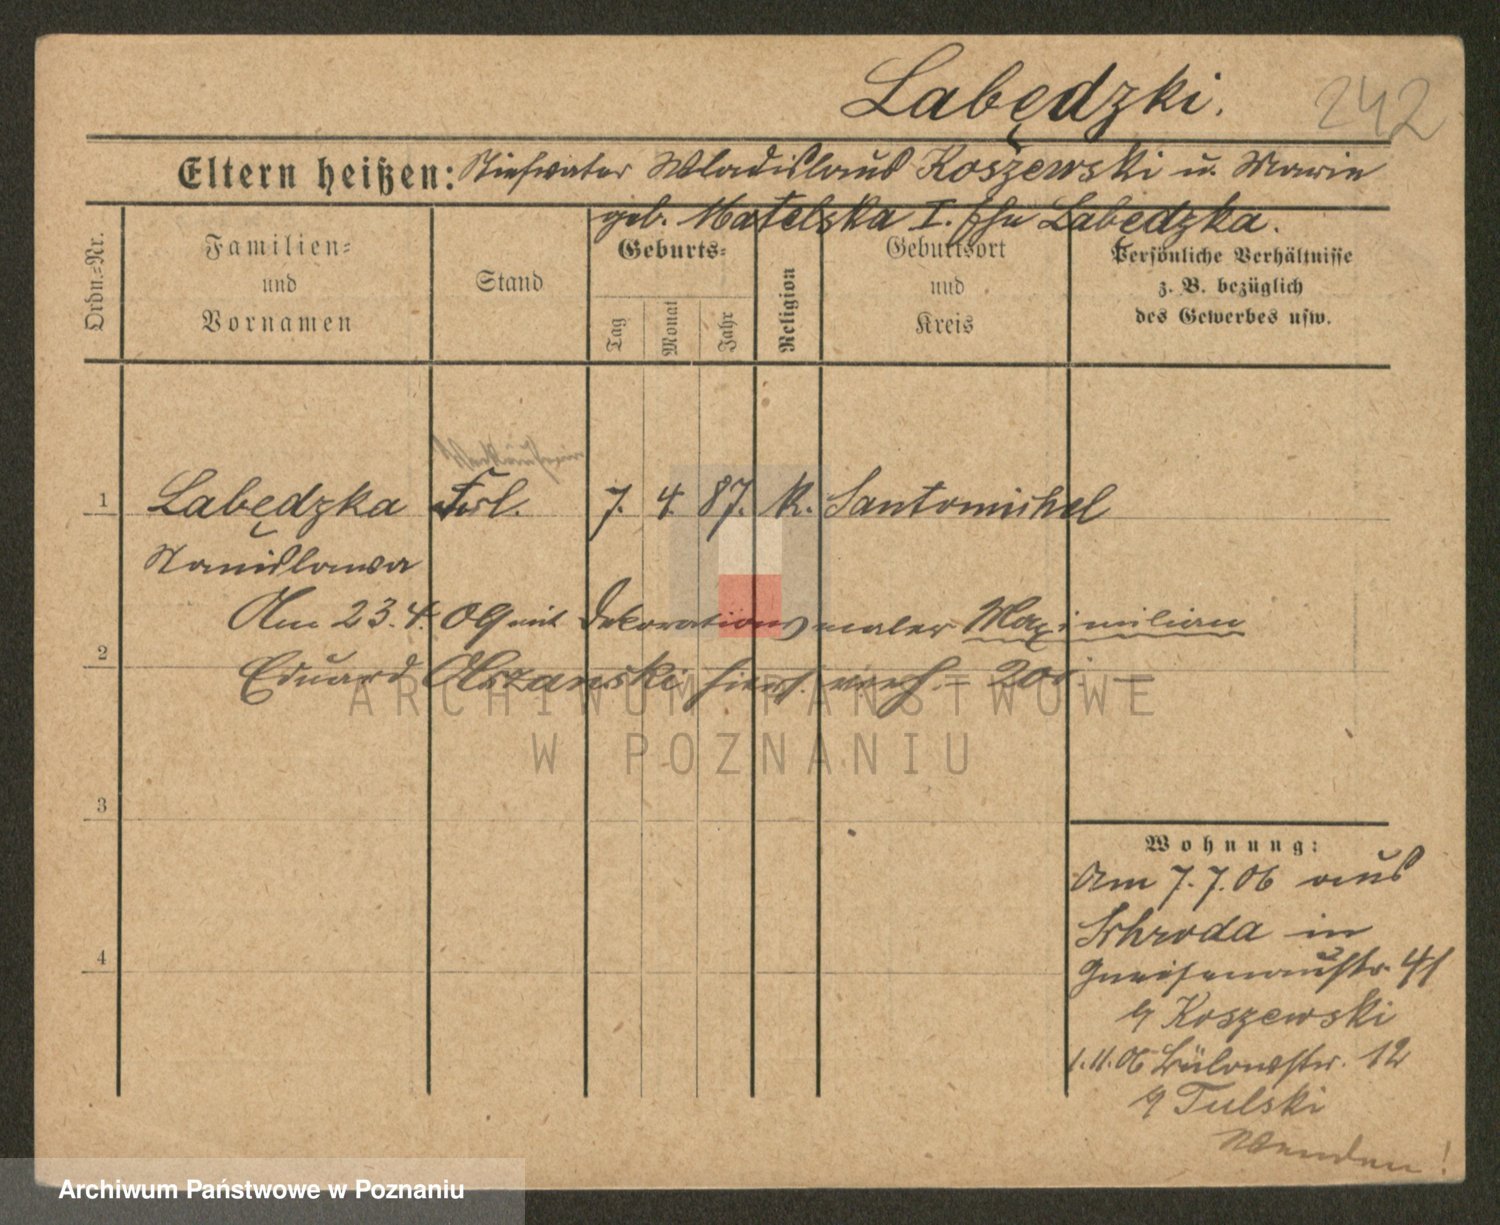 Labędzki.
242
Eltern heißen: Stiefvater Wladislaus Koszewski u. Marie
geb. Matelska I. Ehe Labędzka.
Ordn.=Nr.
Familien=
und
Vornamen
Stand
Geburts=
Tag
Monat
Jahr
Religion
Geburtsort
und
Kreis
Persönliche Verhältnisse
z. B. bezüglich
des Gewerbes usw.
Verkäuferin
1 Labędzka Frl. 7. 4. 87. k. Santomischel
Stanislawa
Am 23.4.09 mit Dekorationsmaler Maximilian
2
Eduard Olszanski hiers. verh. – 20
3
4
Wohnung:
Am 7.7.06 aus
Schroda in
Gneisenaustr. 41
b/ Koszewski
1.11.06 Bülowstr. 12
b/ Tulski
Wenden!
ARCHIWUM PAŃSTWOWE
W POZNANIU
Archiwum Państwowe w Poznaniu